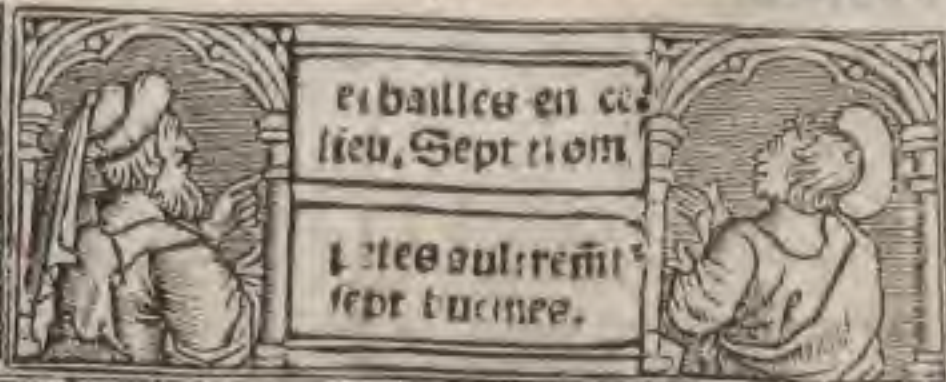 et bailles en ce
lieu. Sept trom
petes aultremēt
sept bucines.